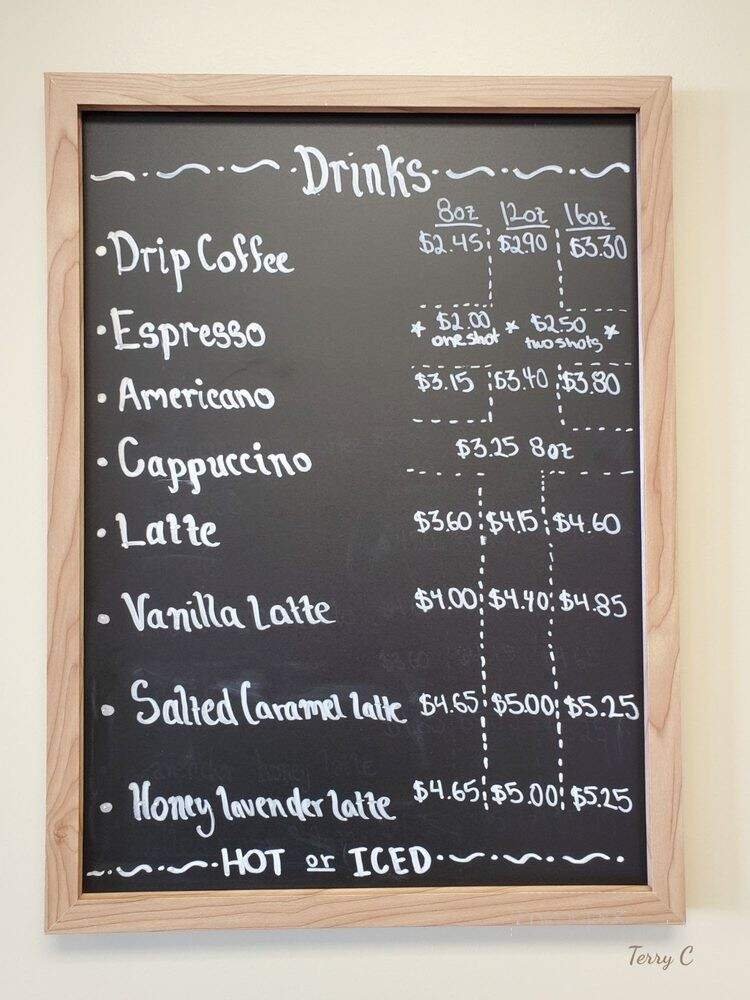 Drinks
8oz 12oz 16oz
• Drip Coffee $2.45 $2.90 $3.30
• Espresso $2.00 one shot $2.50 two shots
• Americano $3.15 $3.40 $3.80
• Cappuccino $3.25 8oz
• Latte $3.60 $4.15 $4.60
• Vanilla Latte $4.00 $4.40 $4.85
• Salted Caramel latte $4.65 $5.00 $5.25
• Honey lavender latte $4.65 $5.00 $5.25
HOT or ICED
Terry C